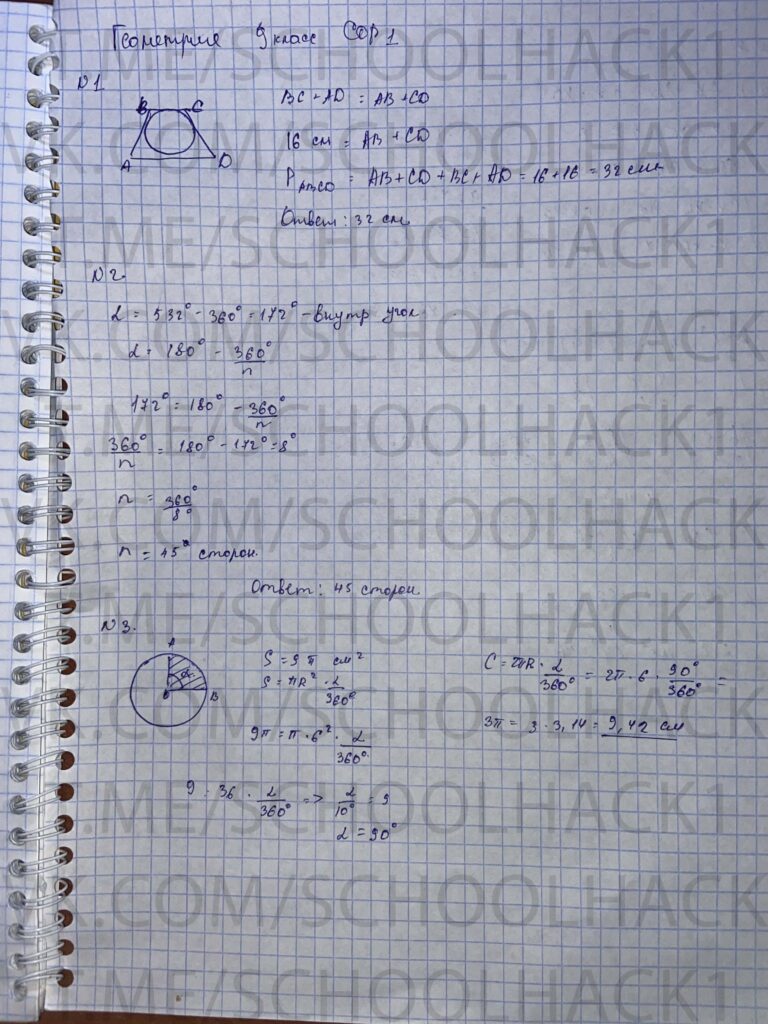 Геометрия 9 класс СОР 1
N 1
B C
A D
BC + AD = AB + CD
16 см = AB + CD
P ABCD = AB + CD + BC + AD = 16 + 16 = 32 см
Ответ: 32 см
N 2.
α = 532° - 360° = 172° - внутр угол
α = 180° - 360°/n
172° = 180° - 360°/n
360°/n = 180° - 172° = 8°
n = 360°/8°
n = 45 сторон.
Ответ: 45 сторон
N 3.
A
α
O B
S = 9π см²
S = πR² · α/360°
9π = π · 6² · α/360°
9 = 36 · α/360° => α/10° = 9
α = 90°
C = 2πR · α/360° = 2π · 6 · 90°/360° =
3π = 3 · 3,14 = 9,42 см
T.ME/SCHOOLHACK1
VK.COM/SCHOOLHACK1
T.ME/SCHOOLHACK1
VK.COM/SCHOOLHACK1
T.ME/SCHOOLHACK1
VK.COM/SCHOOLHACK1
T.ME/SCHOOLHACK1
VK.COM/SCHOOLHACK1
T.ME/SCHOOLHACK1
VK.COM/SCHOOLHACK1
T.ME/SCHOOLHACK1